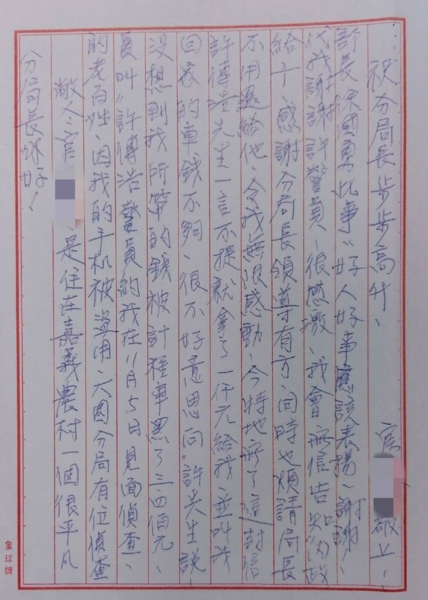 分局長你好!
敝人官 、是住在嘉義農村一個很平凡
的老百姓、因我的手机被盜用、大園分局有位偵查
員叫"許博浩警員約我在11月5日見面偵查、
沒想到我所帶的錢被計程車黑了三四佰元、
回家的車錢不夠、很不好意思向許先生說、
許博浩先生一言不提就拿了一仟元給我並叫我
不用還給他、令我無限感動、今特地寫了這封信
給于感謝分局長領導有方、同時也煩請局長
代我謝謝許警員、很感激、我會寫信告知內政
部長徐國勇此事"好人好事應該表揚、謝謝、
祝分局長步步高升、
官 敬上、